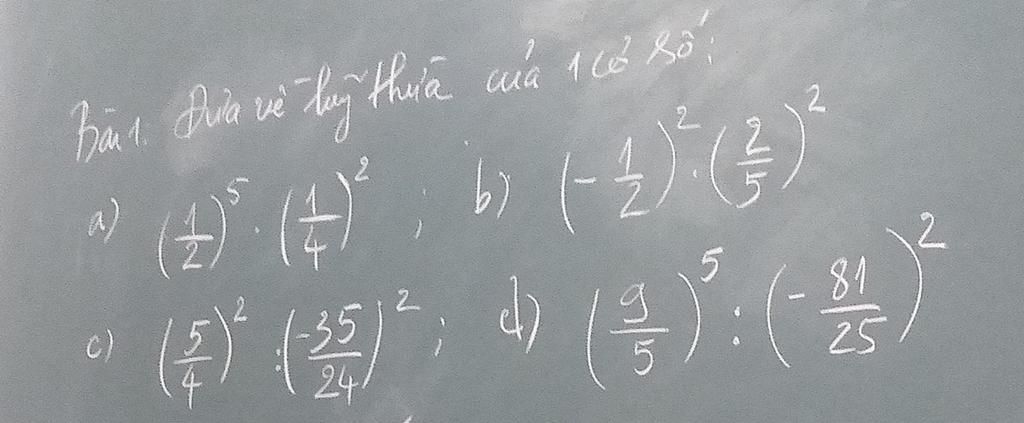 Bài 1. Đưa về luỹ thừa của 1 cơ số:
a) (1/2)^5 . (1/4)^2 ; b) (-1/2)^2 . (2/5)^2
c) (5/4)^2 : (-35/24)^2 ; d) (9/5)^5 : (-81/25)^2